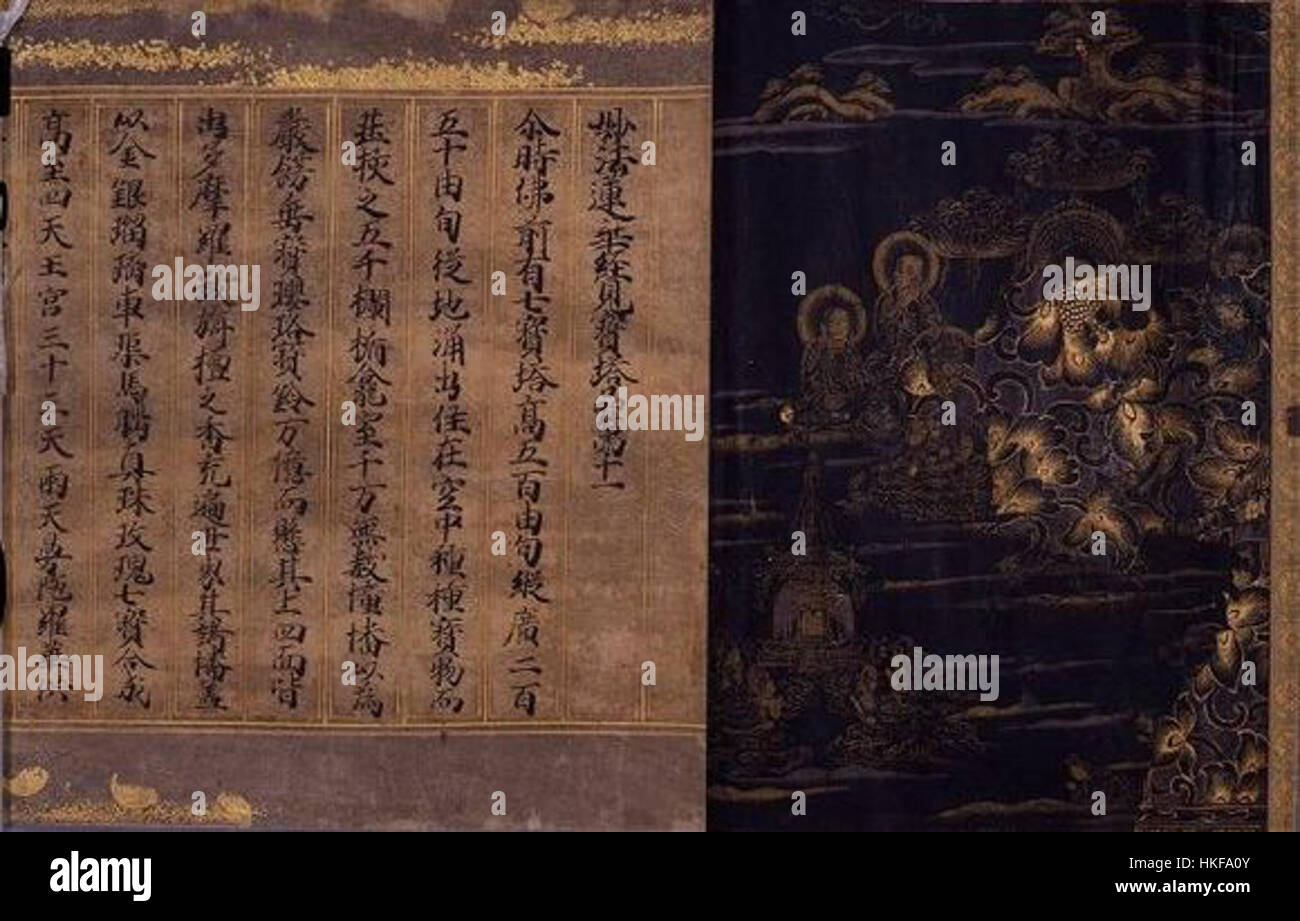 妙法蓮花経見寶塔品第十一
尒時佛前有七寶塔高五百由旬縱廣二百
五十由旬從地涌出住在空中種種寶物而
莊挍之五千欄楯龕室千万無數幢幡以為
嚴飾垂寶瓔珞寶鈴万億而懸其上四面皆
出多摩羅跋栴檀之香充遍世界其諸幡蓋
以金銀瑠璃車渠馬瑙真珠玫瑰七寶合成
高至四天王宮三十三天雨天曼陀羅華供
alamy
alamy
alamy
alamy
alamy
alamy
alamy stock photo
HKFA0Y
www.alamy.com